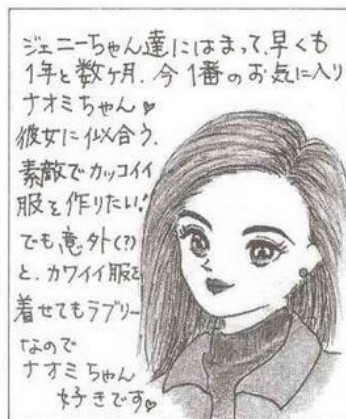 ジェニーちゃん達にはまって、早くも
1年と数ヶ月。今1番のお気に入り
ナオミちゃん♥
彼女に似合う、
素敵でカッコイイ
服を作りたい!
でも意外(?)
と、カワイイ服を
着せてもラブリー
なので
ナオミちゃん
好きです♥